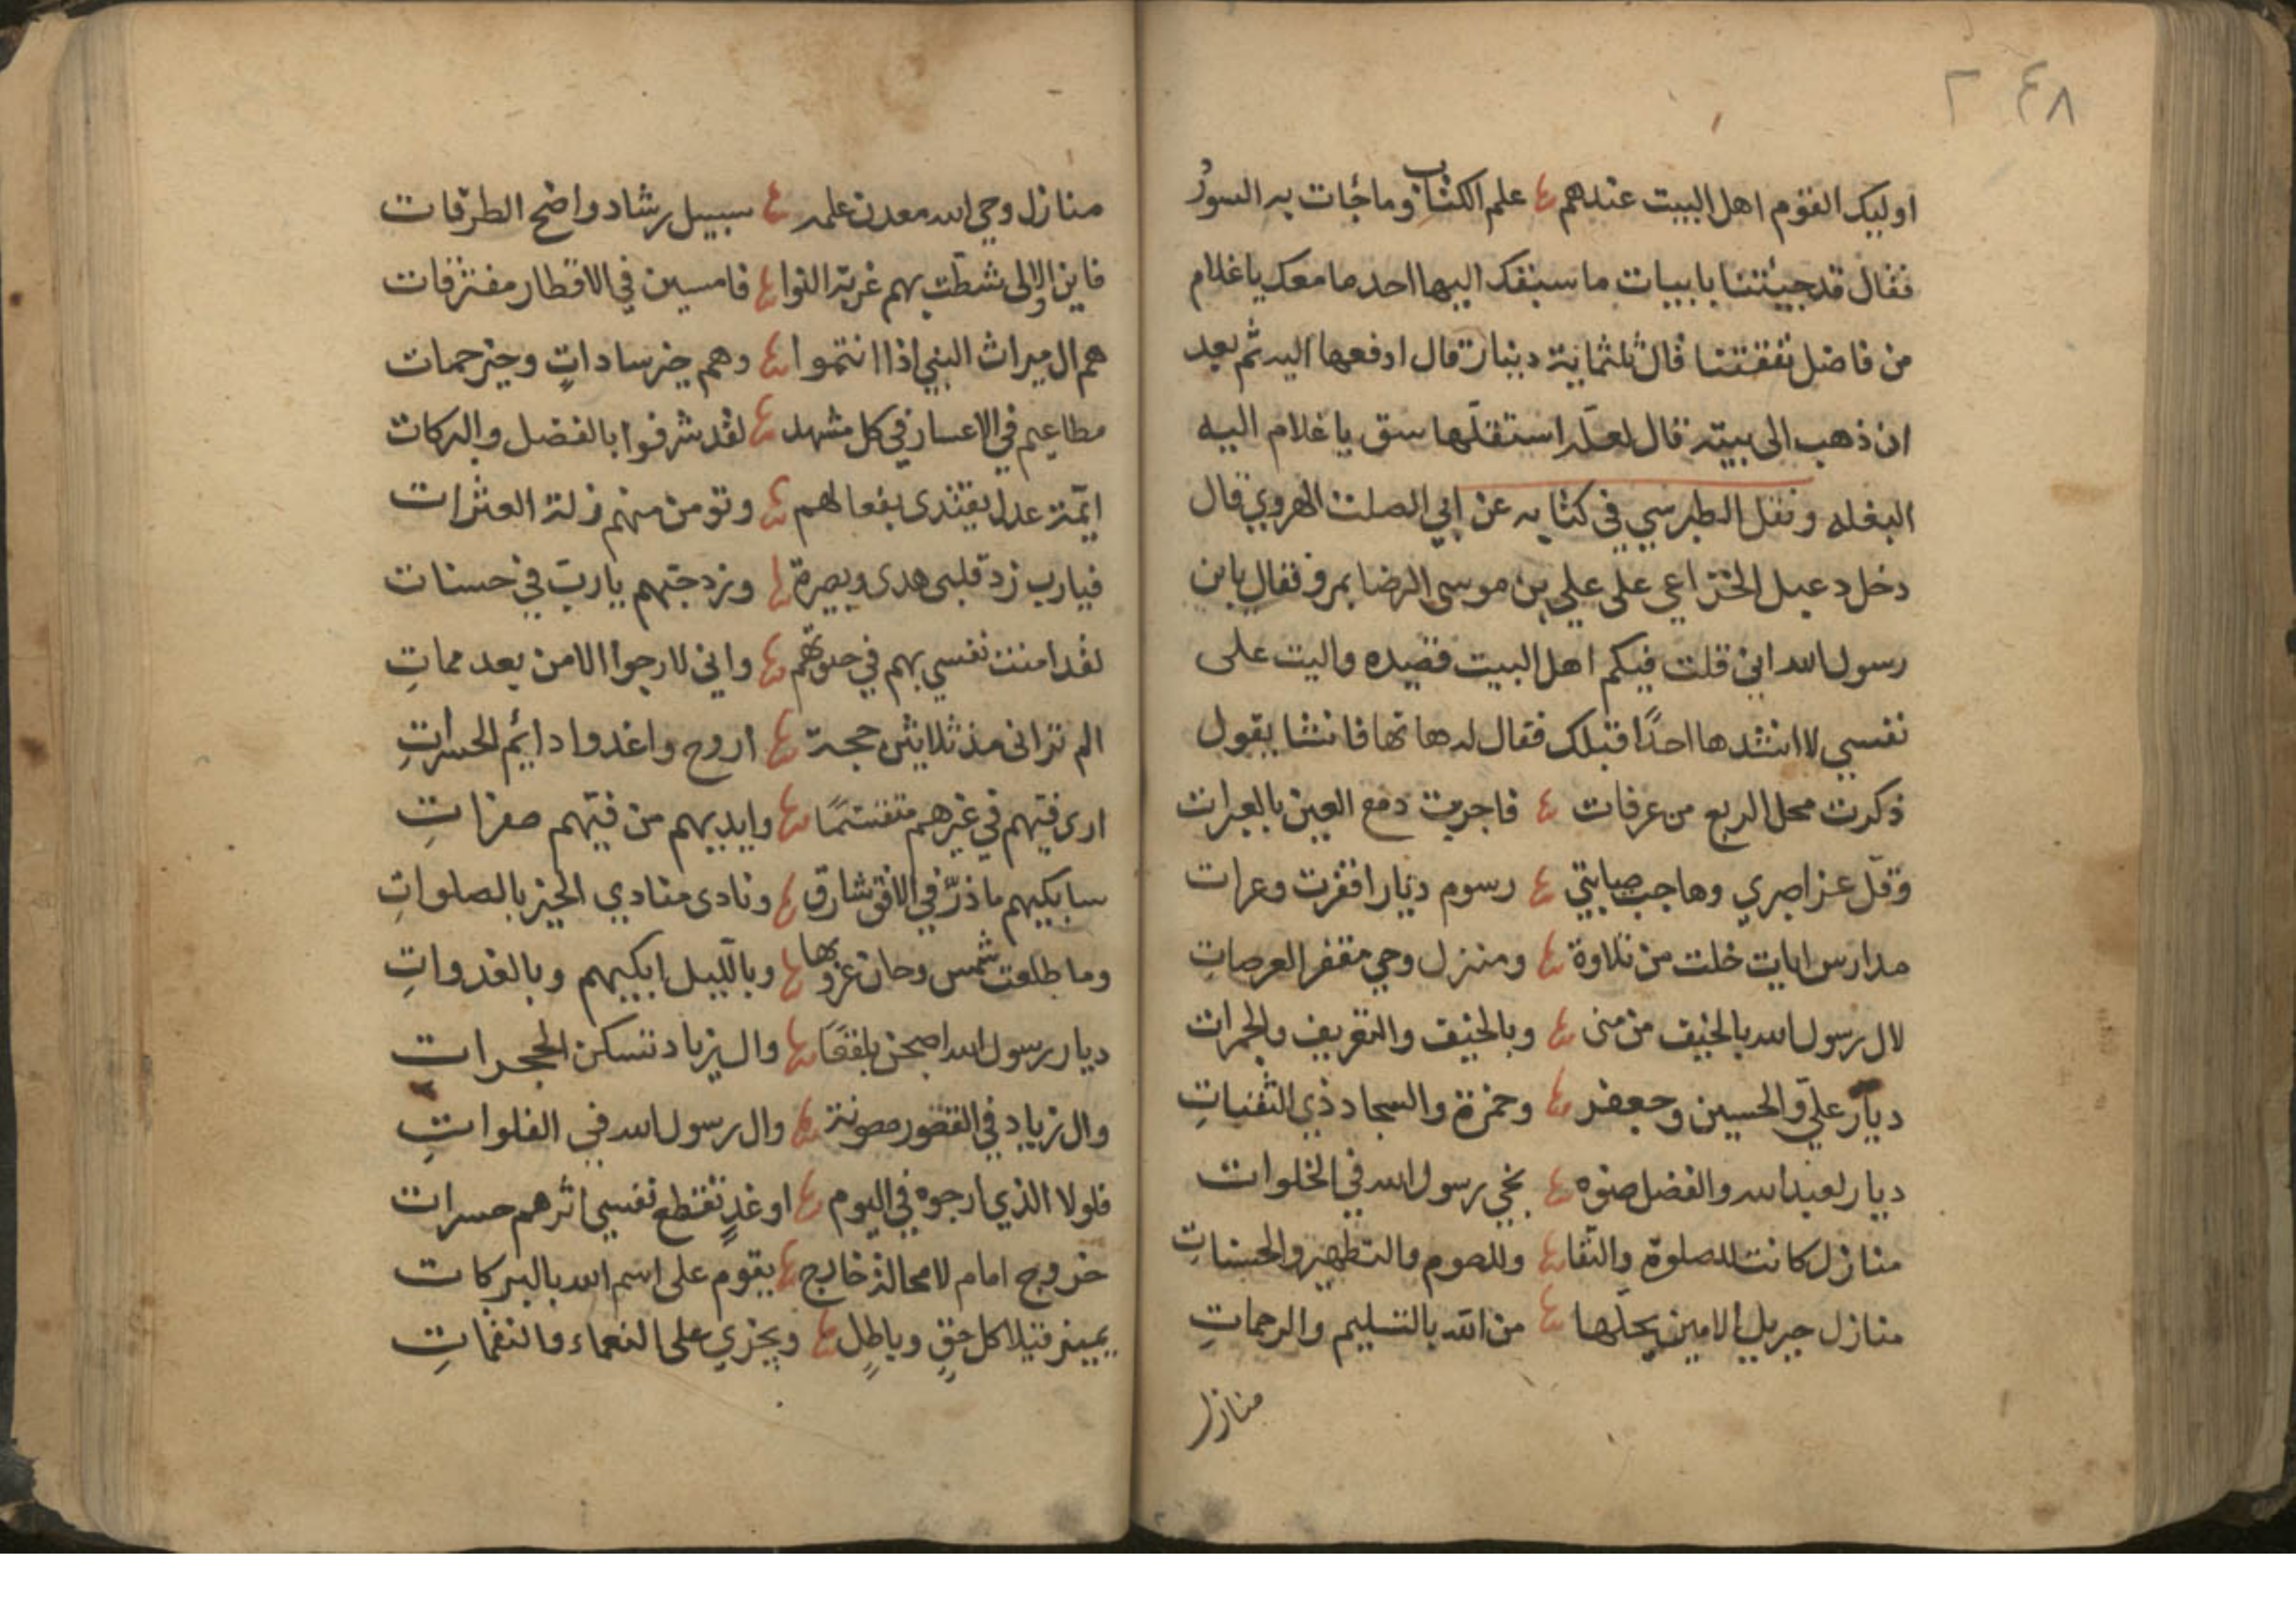 ٢٤٨
اوليك القوم اهل البيت عندهم علم الكتاب وما جات به السور
فقال قد جيتنا بابيات ما سبقك اليها احد ما معك يا غلام
من فاضل نفقتنا قال ثلثماية دينار قال ادفعها اليه ثم بعد
ان ذهب الى بيته قال لعله استقلّها سق يا غلام اليه
البغله ونقل الطبرسي في كتابه عن ابي الصلت الهروي قال
دخل دعبل الخزاعي على علي بن موسى الرضا بمرو فقال يا بن
رسول الله اني قلت فيكم اهل البيت قصيده واليت على
نفسي لا انشدها احدًا قبلك فقال له هاتها فانشا يقول
ذكرت محل الربع من عرفات فاجريت دمع العين بالعبرات
وقلّ عزا صبري وهاجت صبابتي رسوم ديار اقفرت وعرات
مدارس ايات خلت من تلاوة ومنزل وحي مقفر العرصاتِ
لال رسول الله بالخيف من منى وبالخيف والتعريف والجمرات
ديار عليّ والحسين وجعفر وحمزة والسجاد ذي الثفناتِ
ديار لعبد الله والفضل صنوه نجي رسول الله في الخلوات
منازل كانت للصلوة والتقا وللصوم والتطهير والحسناتِ
منازل جبريل الامين يحلّها من الله بالتسليم والرحماتِ
منازل
منازل وحي الله معدن علمه سبيل رشاد واضح الطرقات
فاين الاولى شطّت بهم غربة النوا فامسين في الاقطار مفترقات
هم ال ميراث النبي اذا انتموا وهم خير ساداتٍ وخير حمات
مطاعيم في الاعسار في كل مشهد لقد شرفوا بالفضل والبركات
ايمّة عدل يقتدى بفعالهم وتومن منهم زلة العثرات
فيارب زد قلبى هدى وبصيرة وزد حبّهم يا ربّ في حسنات
لقد امنت نفسي بهم في حيوتهم واني لارجوا الامن بعد مماتِ
الم تراني مذ ثلاثين حجة اروح واغدوا دائم الحسراتِ
ارى فيّهم في غيرهم متقسّمًا وايديهم من فيّهم صفراتِ
سابكيهم ما ذرّ في الافق شارق ونادى منادي الخير بالصلواتِ
وما طلعت شمس وحان غروبها وبالليل ابكيهم وبالغدواتِ
ديار رسول الله اصبحن بلقعًا وال زياد تسكن الحجرات
وال زياد في القصور مصونة وال رسول الله في الفلواتِ
فلولا الذي ارجوه في اليوم او غدٍ تقطع نفسي اثرهم حسرات
خروج امام لا محالة خارج يقوم على اسم الله بالبركات
يميز فينا كل حقٍ وباطلٍ ويجزي على النعماء والنقماتِ